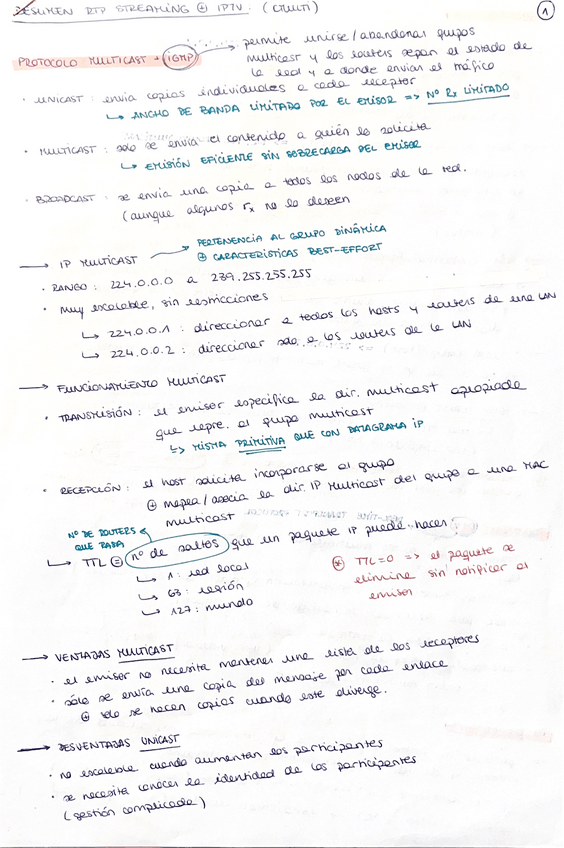 RESUMEN RTP STREAMING ⊕ IPTV. (CMULTI)
1
PROTOCOLO MULTICAST → IGMP
permite unirse/abandonar grupos
multicast y los routers sepan el estado de
la red y a donde envían el tráfico
· UNICAST: envía copias individuales a cada receptor
↳ ANCHO DE BANDA LIMITADO POR EL EMISOR => Nº Rx LIMITADO
· MULTICAST: sólo se envía el contenido a quién lo solicita
↳ EMISIÓN EFICIENTE SIN SOBRECARGA DEL EMISOR
· BROADCAST: se envía una copia a todos los nodos de la red.
(aunque algunos rx no lo deseen
→ IP MULTICAST
PERTENENCIA AL GRUPO DINÁMICA
⊕ CARACTERÍSTICAS BEST-EFFORT
· RANGO: 224.0.0.0 a 239.255.255.255
· Muy escalable, sin restricciones
↳ 224.0.0.1: direccionar a todos los hosts y routers de una LAN
↳ 224.0.0.2: direccionar sólo a los routers de la LAN
→ FUNCIONAMIENTO MULTICAST
· TRANSMISIÓN: el emisor especifica la dir. multicast apropiada
que repre. al grupo multicast
↳ MISMA PRIMITIVA QUE CON DATAGRAMA IP
· RECEPCIÓN: el host solicita incorporarse al grupo
⊕ mapea/asocia la dir. IP Multicast del grupo a una MAC
multicast
Nº DE ROUTERS
QUE PASA
↳ TTL = nº de saltos que un paquete IP puede hacer
↳ 1: red local
↳ 63: región
↳ 127: mundo
⊛ TTL=0 => el paquete se
elimina sin notificar al
emisor
→ VENTAJAS MULTICAST
· el emisor no necesita mantener una lista de los receptores
· sólo se envía una copia del mensaje por cada enlace
⊕ sólo se hacen copias cuando este diverge.
→ DESVENTAJAS UNICAST
· no escalable cuando aumentan los participantes
· se necesita conocer la identidad de los participantes
(gestión complicada)